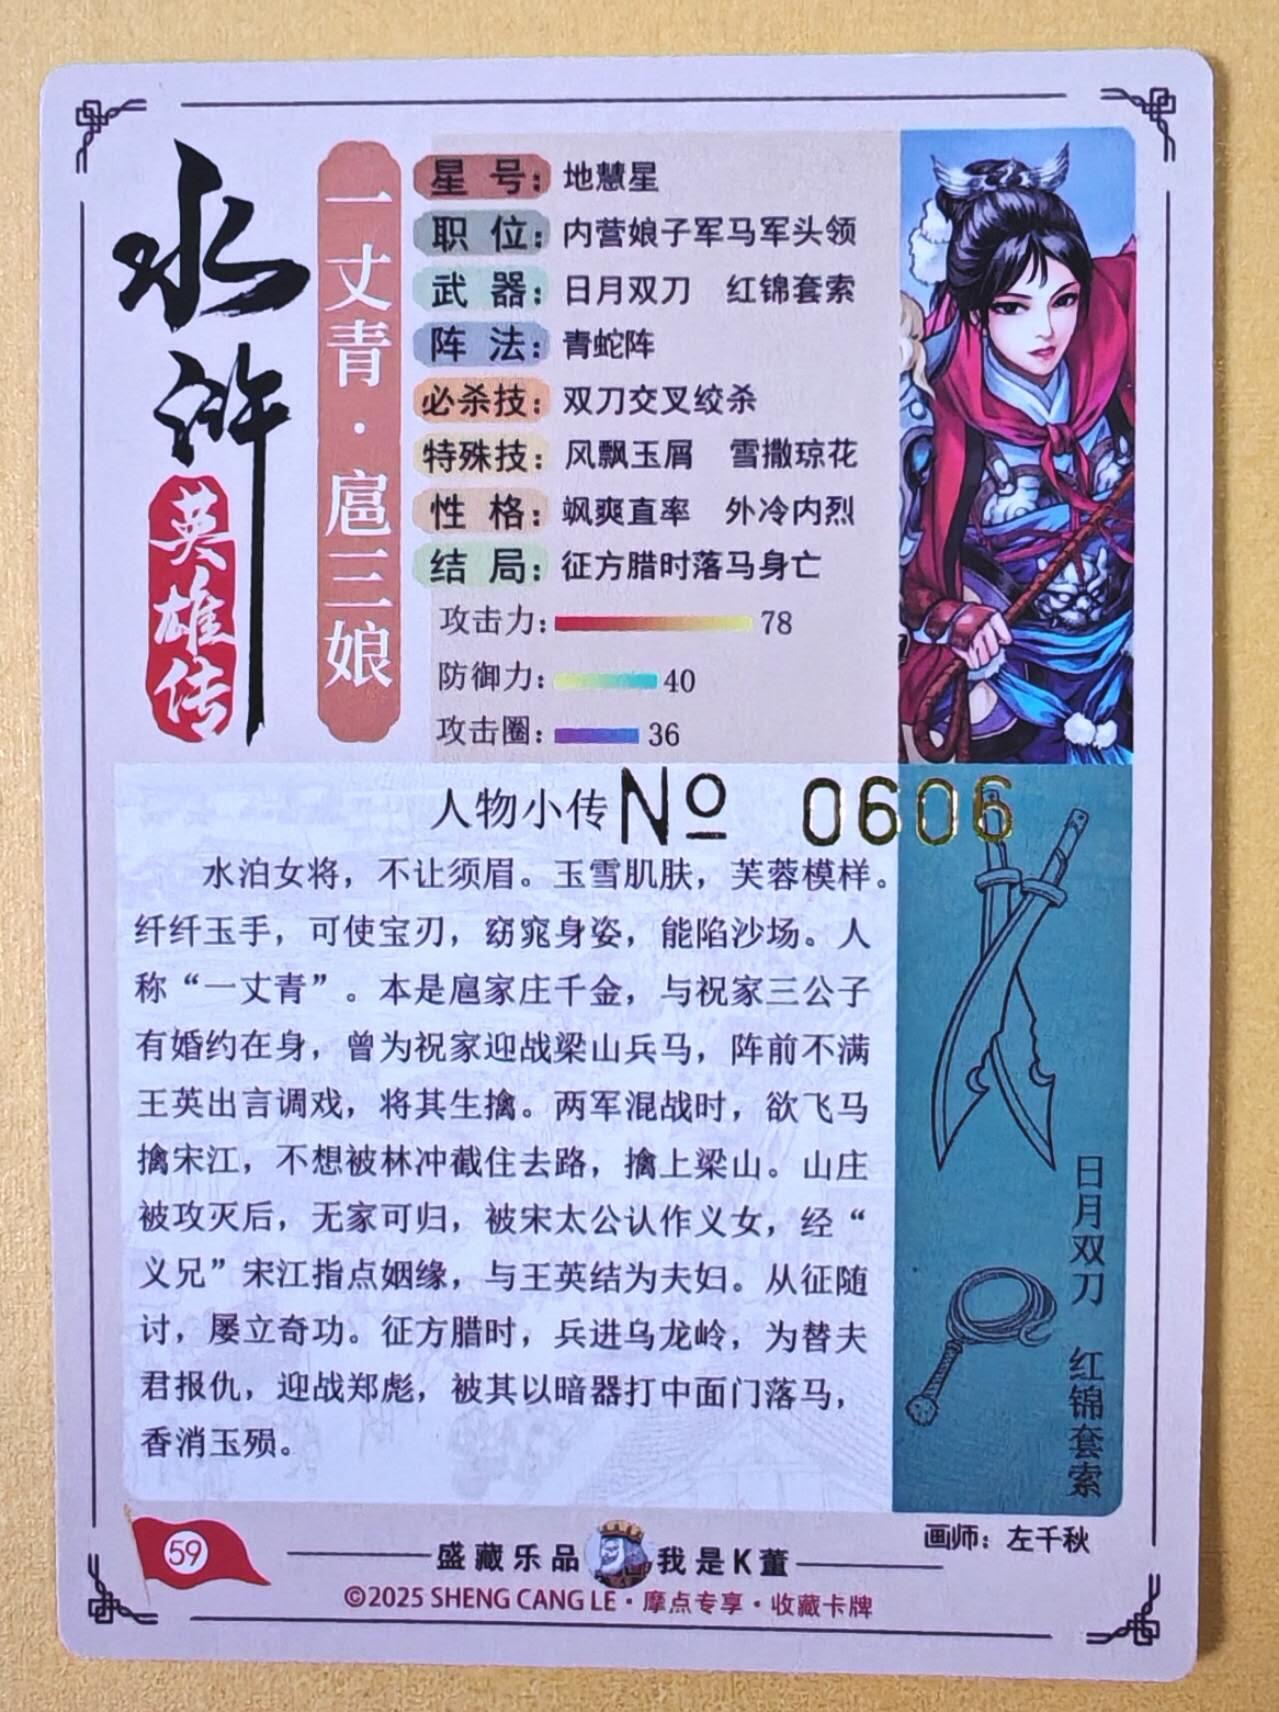 水浒
英雄传
一丈青·扈三娘
星号：地慧星
职位：内营娘子军马军头领
武器：日月双刀 红锦套索
阵法：青蛇阵
必杀技：双刀交叉绞杀
特殊技：风飘玉屑 雪撒琼花
性格：飒爽直率 外冷内烈
结局：征方腊时落马身亡
攻击力：78
防御力：40
攻击圈：36
人物小传 No 0606
水泊女将，不让须眉。玉雪肌肤，芙蓉模样。
纤纤玉手，可使宝刃，窈窕身姿，能陷沙场。人
称“一丈青”。本是扈家庄千金，与祝家三公子
有婚约在身，曾为祝家迎战梁山兵马，阵前不满
王英出言调戏，将其生擒。两军混战时，欲飞马
擒宋江，不想被林冲截住去路，擒上梁山。山庄
被攻灭后，无家可归，被宋太公认作义女，经“
义兄”宋江指点姻缘，与王英结为夫妇。从征随
讨，屡立奇功。征方腊时，兵进乌龙岭，为替夫
君报仇，迎战郑彪，被其以暗器打中面门落马，
香消玉殒。
日月双刀 红锦套索
画师：左千秋
59
盛藏乐品 我是K董
©2025 SHENG CANG LE·摩点专享·收藏卡牌